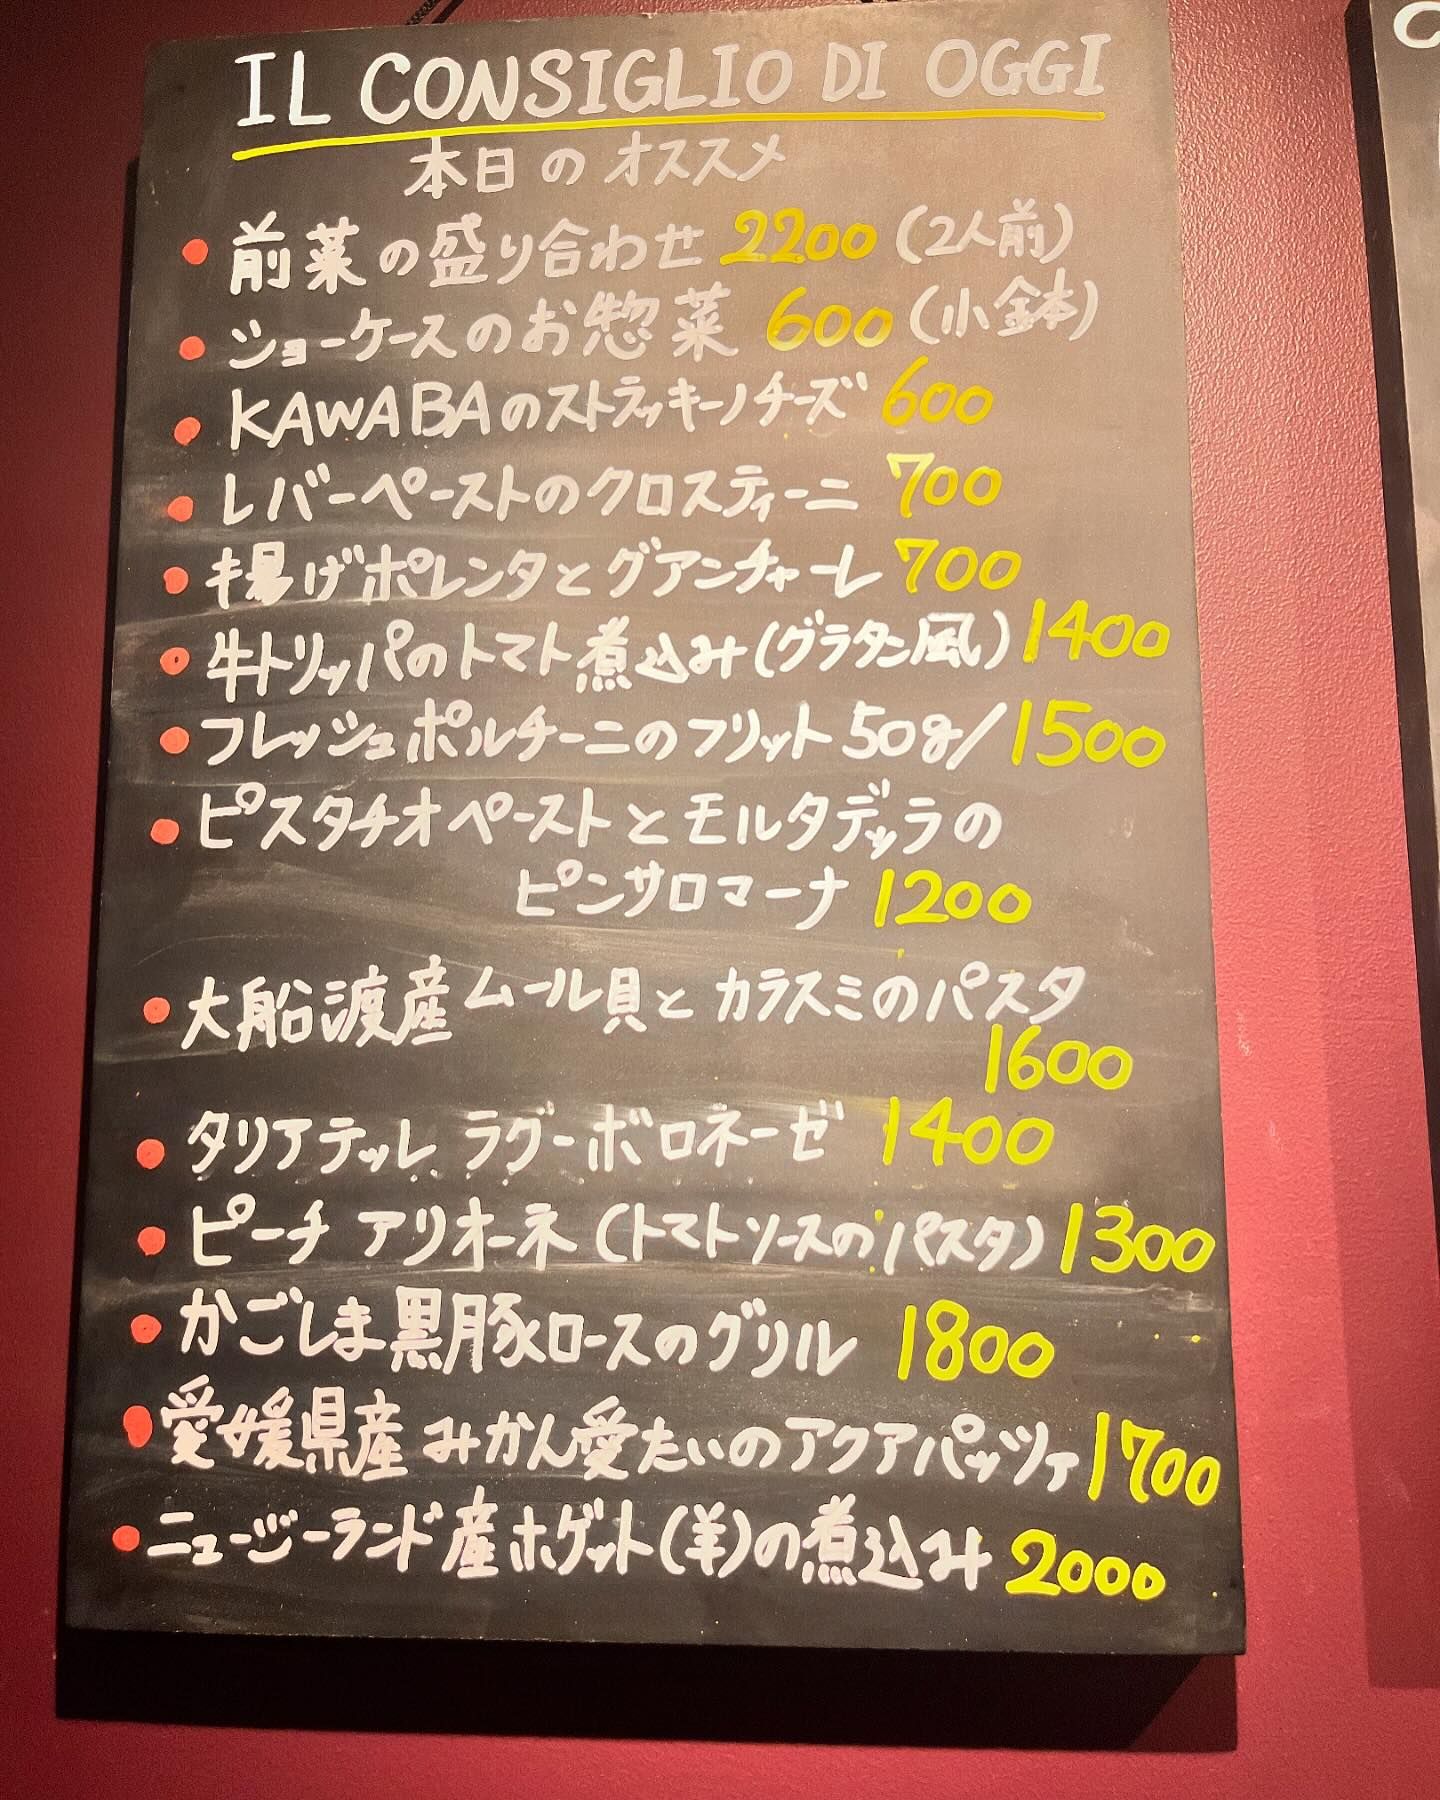 IL CONSIGLIO DI OGGI
本日のオススメ
• 前菜の盛り合わせ 2200 (2人前)
• ショーケースのお惣菜 600 (小鉢)
• KAWABAのストラッキーノチーズ 600
• レバーペーストのクロスティーニ 700
• 揚げポレンタとグアンチャーレ 700
• 牛トリッパのトマト煮込み(グラタン風) 1400
• フレッシュポルチーニのフリット 50g/1500
• ピスタチオペーストとモルタデッラの
ピンサロマーナ 1200
• 大船渡産ムール貝とカラスミのパスタ
1600
• タリアテッレ ラグーボロネーゼ 1400
• ピーチ アリオーネ (トマトソースのパスタ) 1300
• かごしま黒豚ロースのグリル 1800
• 愛媛県産 みかん愛たいのアクアパッツァ 1700
• ニュージーランド産ホゲット(羊)の煮込み 2000